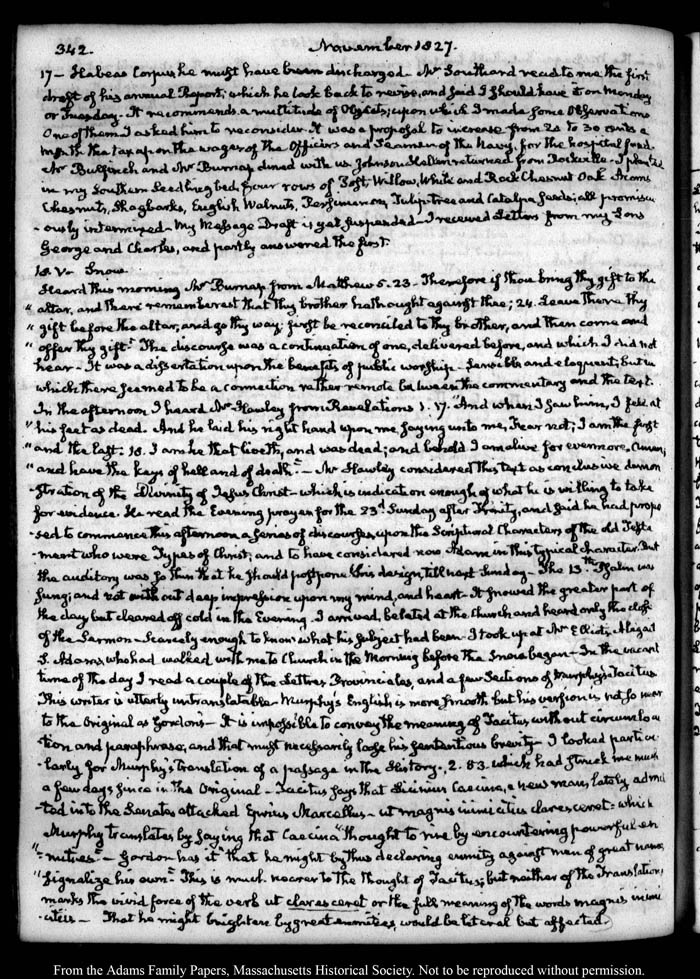 342.
November 1827.
17 – Habeas Corpus he must have been discharged. Mr Southard read to me the first
draft of his annual Report, which he took back to revise, and said I should have it on Monday
or Tuesday. It recommends a multitude of Objects; upon which I made some Observations
One of them I asked him to reconsider. It was a proposal to increase from 20 to 30 cents a
month the tax upon the wages of the Officers and Seamen of the Navy, for the hospital fund.
Mr Bulfinch and Mr Burnap dined with us. Johnson Hellen returned from Rockville – I planted
in my Southern Seedling bed, four rows of Post Willow, White and Rock Chesnut Oak Acorns
Chesnuts, Shagbarks, English Walnuts, Persimmon, Tulip tree and Catalpa seeds; all promiscu
-ously intermixed – My Message Draft is yet suspended – I received Letters from my Sons
George and Charles, and partly answered the first.
18. V. Snow.
Heard this morning Mr Burnap from Matthew 5. 23 – Therefore if thou bring thy gift to the
" altar, and there rememberest that thy brother hath ought against thee; 24. Leave there thy
" gift before the altar, and go thy way; first be reconciled to thy brother, and then come and
" offer thy gift." The discourse was a continuation of one, delivered before, and which I did not
hear – It was a dissertation upon the benefits of public worship – Sensible and eloquent; but in
which there seemed to be a connection rather remote between the commentary and the text.
In the afternoon I heard Mr Hawley from Revelations 1. 17. "And when I saw him, I fell at
" his feet as dead. And he laid his right hand upon me, saying unto me, Fear not; I am the first
" and the last: 18. I am he that liveth, and was dead; and behold I am alive for evermore, Amen;
" and have the keys of hell and of death." – Mr Hawley considered this text as conclusive demon
-stration of the Divinity of Jesus Christ – which is indication enough of what he is willing to take
for evidence. He read the Evening prayer for the 23d Sunday after Trinity, and said he had propo
-sed to commence this afternoon a series of discourses, upon the Scriptural Characters of the old Testa
-ment who were Types of Christ; and to have considered now Adam in this typical character. But
the auditory was so thin that he should postpone this design, till next Sunday – The 13th Psalm was
sung; and not without deep impression upon my mind, and heart – It snowed the greater part of
the day but cleared off cold in the Evening. I arrived, belated at the Church and heard only the close
of the Sermon – Scarcely enough to know what his subject had been – I took up at Mr Elliot's, Abigail
S. Adams who had walked with me to Church in the Morning before the Snow began – In the vacant
time of the day I read a couple of the Lettres Provinciales, and a few Sections of Murphy's Tacitus
This writer is utterly untranslatable – Murphy's English is more smooth but his version is not so near
to the Original as Gordon's – It is impossible to convey the meaning of Tacitus without circumlocu
-tion and paraphrase, and that must necessarily lose his sententious brevity – I looked particu
-larly for Murphy's translation of a passage in the History, 2. 53. which had struck me much
a few days since in the Original – Tacitus says that Licinius Caecina, a new man, lately admit
-ted into the Senate attacked Eprius Marcellus – ut magnis inimicitiis claresceret: which
Murphy translates by saying that Caecina "thought to rise by encountering powerful en
"-mities" – Gordon has it "that he might by thus declaring enmity against men of great name,
" signalize his own." This is much nearer to the thought of Tacitus; but neither of the Translations
marks the vivid force of the verb ut claresceret or the full meaning of the words magnis inimi
-citiis – That he might brighten by great enmities would be literal but affected.
From the Adams Family Papers, Massachusetts Historical Society. Not to be reproduced without permission.